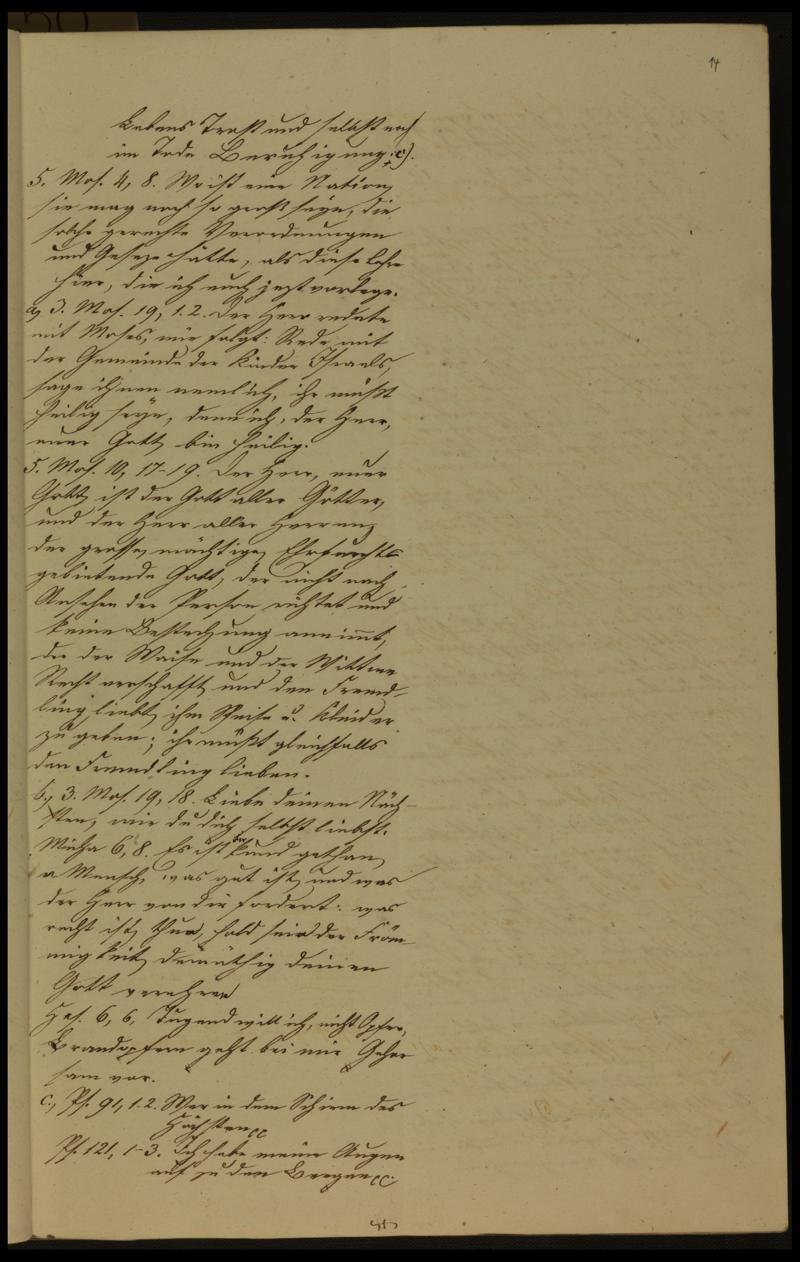 14
Lebens Trost und selbst noch
im Tode Beruhigung. c).
5. Mos. 4, 8. Wo ist eine Nation,
sie mag noch so groß seyn, die
solche gerechte Verordnungen
und Geseze hätte, als diese Lehre
hier, die ich euch jezt vorlege.
a, 3. Mos. 19, 1. 2. Der Herr redete
mit Moses, wie folgt: Rede mit
der Gemeinde der Kinder Israels,
sage ihnen nemlich, ihr müßt
heilig seyn, denn ich, der Herr,
euer Gott, bin heilig.
5. Mos. 10, 17-19. Der Herr, euer
Gott, ist der Gott aller Götter,
und der Herr aller Herren,
der grosse, mächtige, Ehrfurcht-
gebietende Gott, der nicht nach
Ansehen der Person richtet und
keine Bestechung annimmt,
der der Waise und der Wittwe
Recht verschafft, und den Fremd-
ling liebt, ihm Speise u. Kleider
zu geben; ihr müßt gleichfalls
den Fremdling lieben.
b, 3. Mos. 19, 18. Liebe deinen Näch-
sten, wie du dich selbst liebst.
Micha 6, 8. Es ist dir kund gethan,
o Mensch, was gut ist, und was
der Herr von dir fordert: was
recht ist, thun, hold sein der Fröm
migkeit, demüthig deinen
Gott verehren
Hos. 6, 6, Tugend will ich, nicht Opfer,
Brandopfern geht bei mir Gehor
sam vor.
c., Ps. 91, 1-2. Wer in dem Schirm des
Höchsten cc
Ps. 121, 1-3. Ich hebe meine Augen
auf zu den Bergen cc.